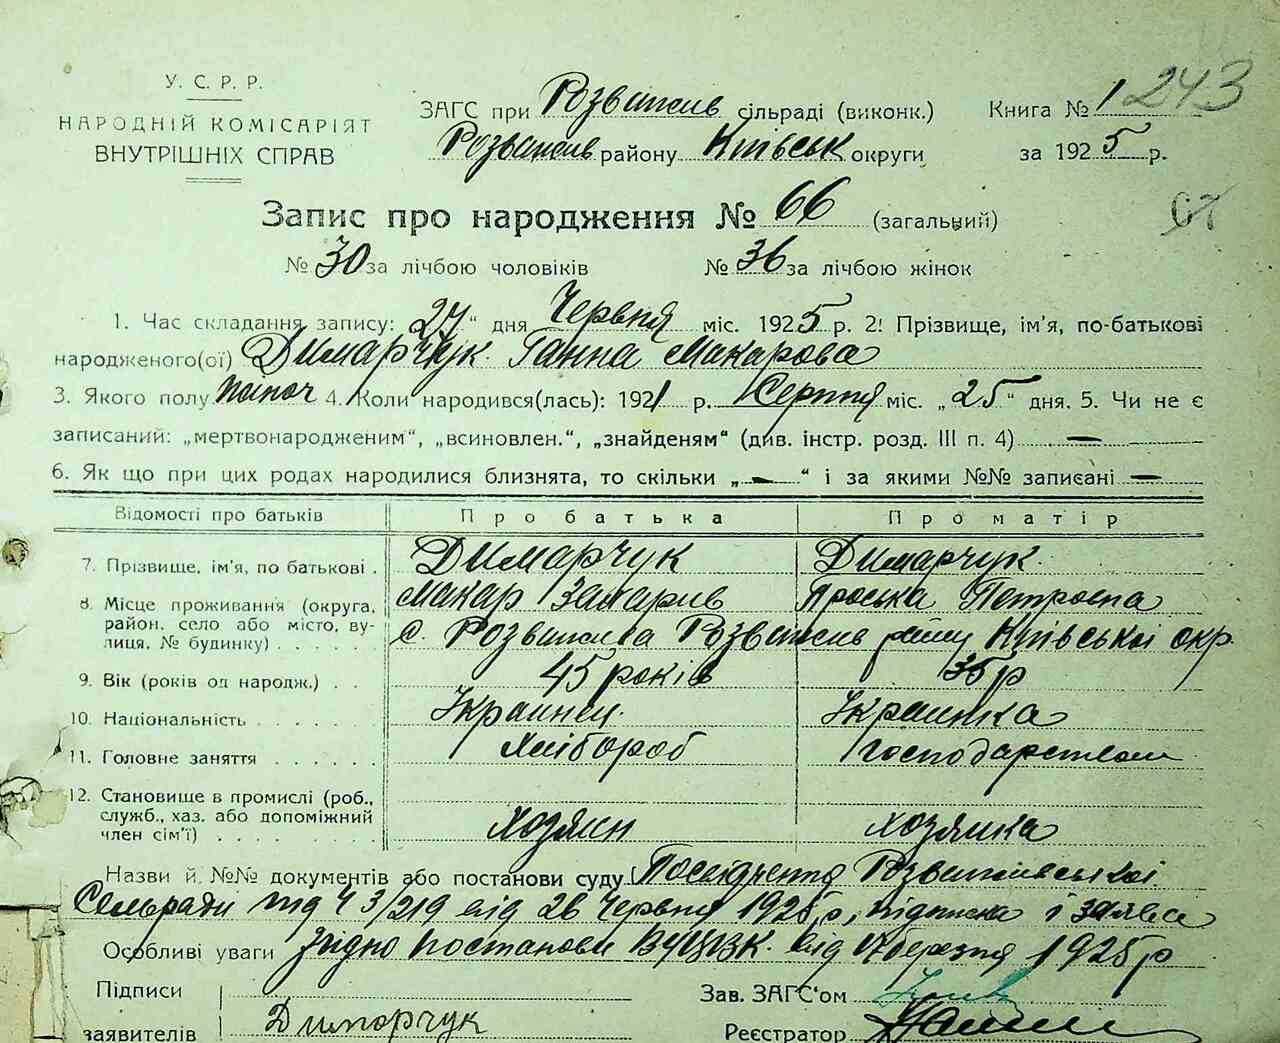 У. С. Р. Р.
НАРОДНІЙ КОМІСАРІЯТ
ВНУТРІШНІХ СПРАВ
ЗАГС при Розважив сільраді (виконк.)
Розважив району Київськ округи
Книга № 1 243
за 1925 р.
Запис про народження № 66 (загальний)
67
№ 30 за лічбою чоловіків № 36 за лічбою жінок
1. Час складання запису: 27 " дня Червня міс. 1925 р. 2. Прізвище, ім'я, по-батькові
народженого(ої) Димарчук Ганна Макарова
3. Якого полу жіноч 4. Коли народився(лась): 1921 р. Серпня міс. „ 25 " дня. 5. Чи не є
записаний: „мертвонародженим", „всиновлен.", „знайденям" (див. інстр. розд. III п. 4) —
6. Як що при цих родах народилися близнята, то скільки „ — " і за якими №№ записані —
Відомості про батьків Про батька Про матір
7. Прізвище, ім'я, по батькові . Димарчук Димарчук
Макар Захарив Проська Петровна
8. Місце проживання (округа, район, село або місто, вулиця, № будинку) . . . . . с. Розважива Розважив райну Київської окр.
9. Вік (років од народж.) . . 45 років 35 р
10. Національність . . . . . . Украинец Украинка
11. Головне заняття . . . . . . Хлібороб господарством
12. Становище в промислі (роб., служб., хаз. або допоміжний член сім'ї) . . . . . хозяин хозяика
Назви й №№ документів або постанови суду Посвідчення Розважівської
Сельради під Ч 3/219 від 26 Червня 1925 р, підписка і заява
Особливі уваги Згідно постанови ВУЦВК від 17 березня 1925 р
Підписи
заявителів Диморчук
Зав. ЗАГС'ом
Реєстратор